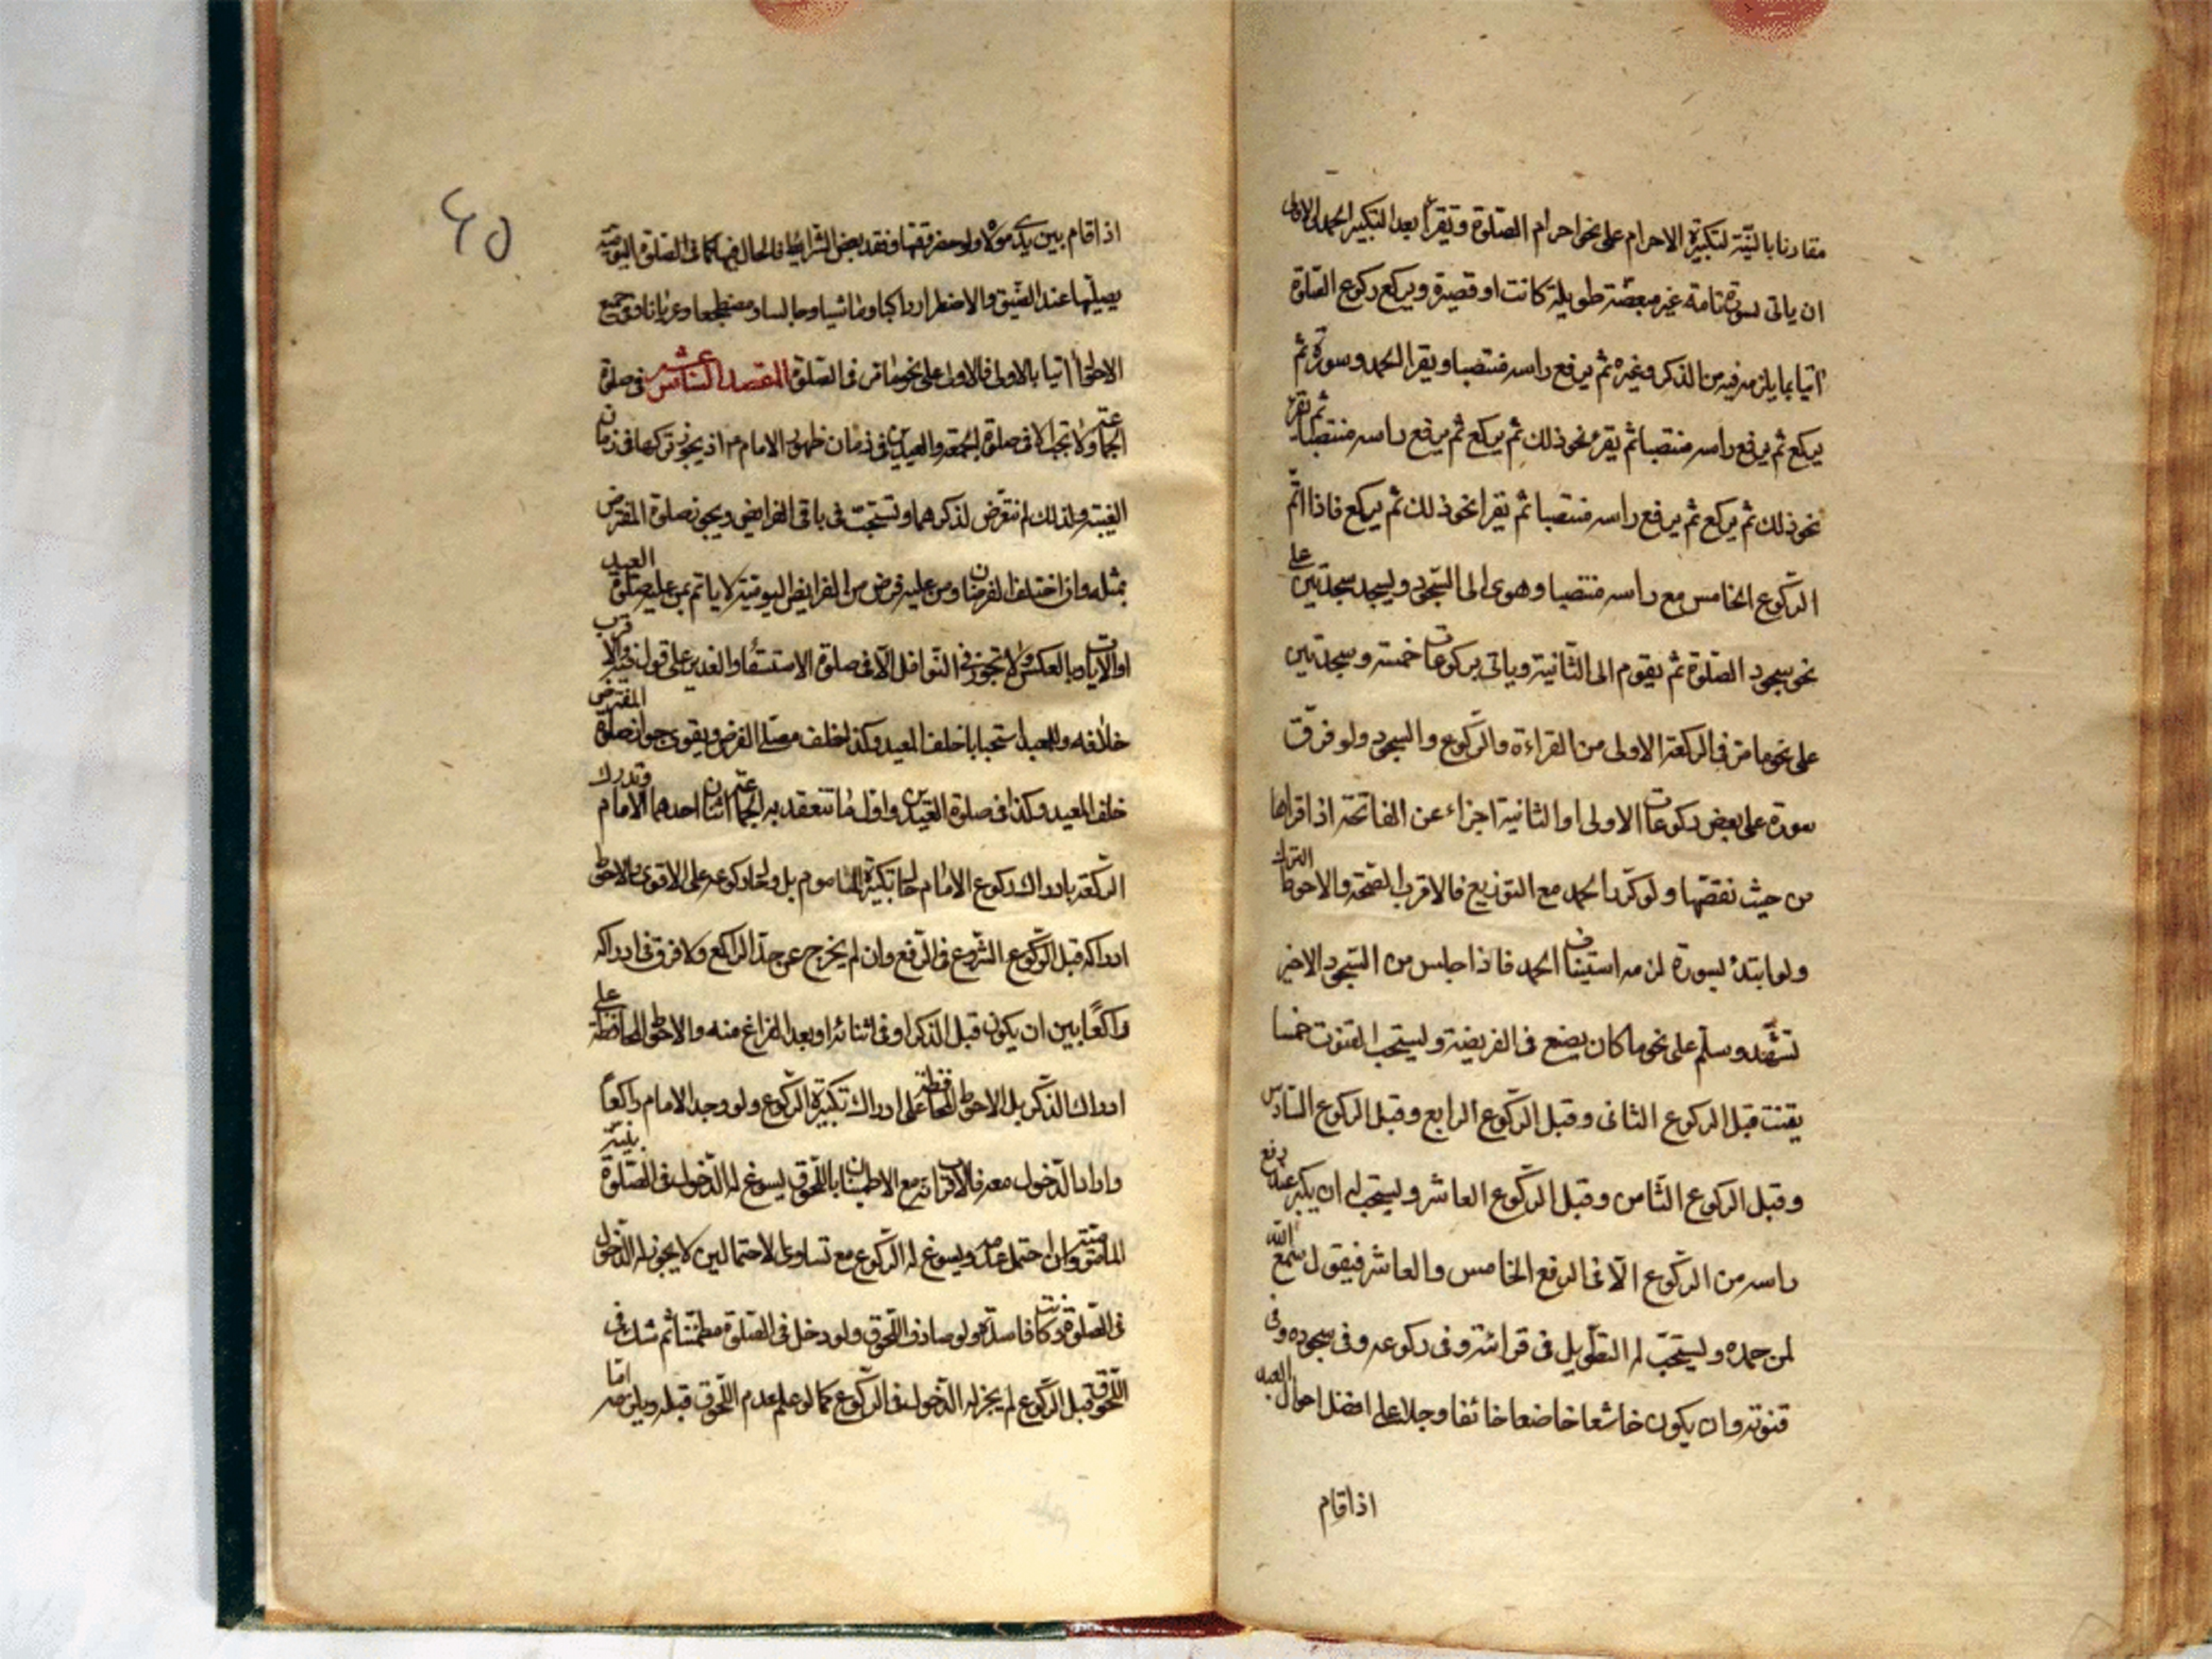 مقارنا بالنيّة لتكبيرة الاحرام على نحو احرام الصلوة ويقرأ بعد التكبير الحمد
ان ياتى بسورة تامة غير مبعضة طويلة كانت او قصيرة ويركع ركوع الصلوة
اتيا بما يلزم فيه من الذكر وغيره ثم يرفع راسه منتصبا ويقرا الحمد وسورة ثم
يركع ثم يرفع راسه منتصبا ثم يقرء نحو ذلك ثم يركع ثم يرفع راسه منتصبا ثم يقرء
نحو ذلك ثم يركع ثم يرفع راسه منتصبا ثم يقرا نحو ذلك ثم يركع فاذا اتمّ
الركوع الخامس رفع راسه منتصبا وهوى الى السّجود ويسجد سجدتين على
نحو سجود الصلوة ثم يقوم الى الثّانية وياتى بركوعات خمسة وسجدتين
على نحو ما مرّ فى الركعة الاولى من القراءة والركوع والسجود ولو فرّق
سورة على بعض ركوعات الاولى او الثانية اجزاء عن الفاتحة اذا قراها
من حيث نقصها ولو كرّر الحمد مع التوزيع فالاقرب الصّحة والاحوط الترك
ولو ابتدء بسورة لزمه استيناف الحمد فاذا جلس من السّجود الاخير
تشهّد وسلّم على نحو ما كان يصنع فى الفريضة ويستحب القنوت خمسا
يقنت قبل الركوع الثانى وقبل الركوع الرابع وقبل الركوع السّادس
وقبل الركوع الثّامن وقبل الركوع العاشر ويستحب له ان يكبر عند رفع
راسه من الركوع الّا فى الرفع الخامس والعاشر فيقول سمع الله
لمن حمده ويستحبّ له التطويل فى قرائته وفى ركوعه وفى سجوده وفى
قنوته وان يكون خاشعا خاضعا خائفا وجلا على افضل احوال العبد
اذا قام
٤٥
اذا قام بين يدى مولاه ولو حضر وقتها وفقد بعض الشرايط فالحال فيها كما فى الصلوة اليوميّة
يصلّيها عند الضّيق والاضطرار راكبا وماشيا وجالسا ومضطجعا وعريانا وفى جميع
الاحوال اتيا بالاولى فالاولى على نحو ما مرّ فى الصلوة المقصد السادس عشر فى صلوة
الجماعة ولا تجب الا فى صلوة الجمعة والعيدين فى زمان ظهور الامام ع اذ يجوز تركها فى زمان
الغيبة ولذلك لم نتعرّض لذكرهما وتستحبّ فى باقى الفرايض ويجوز صلوة المفترض
بمثله وان اختلف الفرضان ومن عليه فرض من الفرايض اليوميّة لا ياتم بمن عليه صلوة العيد
او الايات وبالعكس ولا تجوز فى النّوافل الّا فى صلوة الاستسقاء والغدير على قول
خلافه والمعيد استحبابا خلف المعيد وكذا خلف مصلى الفرض ويقوى جواز صلوة المفترض
خلف المعيد وكذا فى صلوة العيدين واقل ما تنعقد به الجماعة اثنان احدهما الامام وتدرك
الركعة بادراك ركوع الامام حال تكبيرة الماموم بل وحال ركوعه على الاقوى والاحوط
ادراكه قبل الركوع الشروع فى الرّفع وان لم يخرج عن حدّ الراكع ولا فرق فى ادراكه
راكعًا بين ان يكون قبل الذكر او فى اثنائه او بعد الفراغ منه والاحوط المحافظة على
ادراك الذّكر بل الاحوط المحافظة على ادراك تكبيرة الركوع ولو وجد الامام راكعاً
واراد الدّخول معه مع الاطمينان باللّحوق يسوغ له الدّخول فى الصّلوة بنيّة
وان احتمل عدمه ويسوغ له الركوع مع تساوى الاحتمالين لا يجوز له الدّخول
فى الصلوة وكانت فاسدة ولو صادف اللّحوق ولو دخل فى الصّلوة مطمئنّا ثم شك فى
اللّحوق قبل الركوع لم يجز له الدّخول فى الركوع كما لو علم عدم اللّحوق قبله ويلزمه امّا